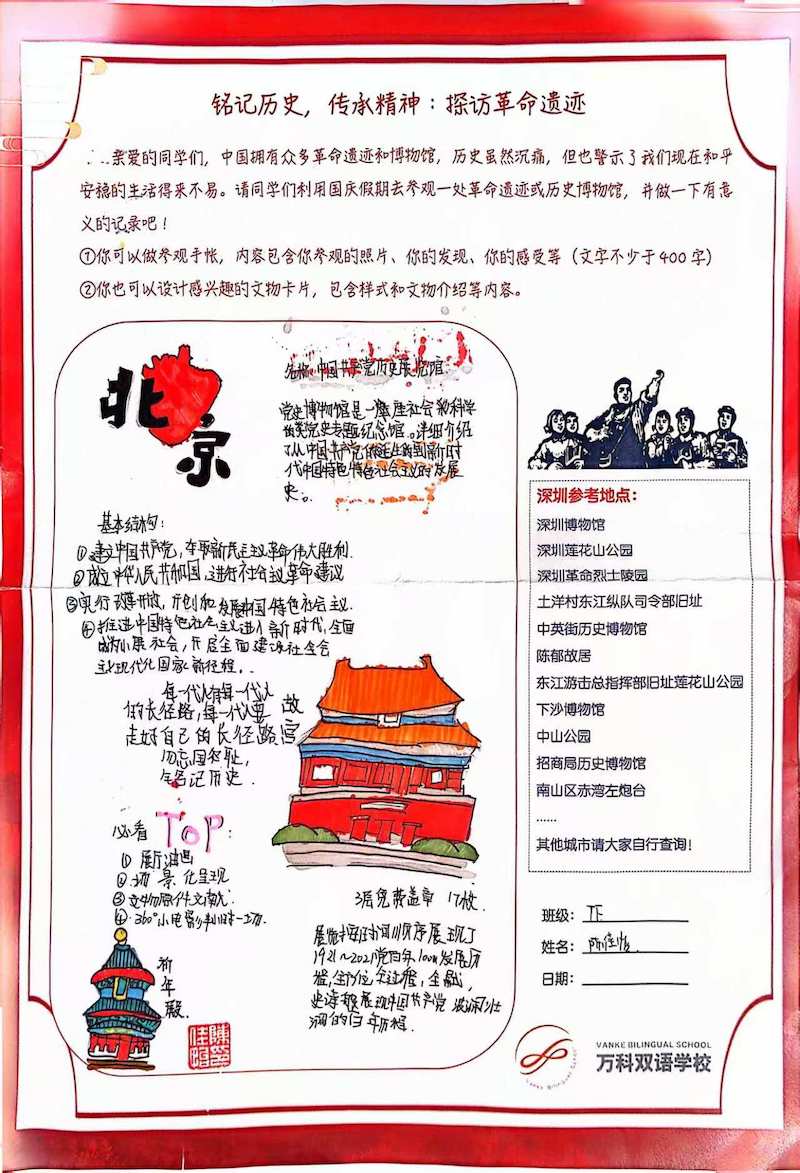 铭记历史，传承精神：探访革命遗迹
亲爱的同学们，中国拥有众多革命遗迹和博物馆，历史虽然沉痛，但也警示了我们现在和平
安稳的生活得来不易。请同学们利用国庆假期去参观一处革命遗迹或历史博物馆，并做一下有意
义的记录吧！
①你可以做参观手帐，内容包含你参观的照片、你的发现、你的感受等（文字不少于400字）
②你也可以设计感兴趣的文物卡片，包含样式和文物介绍等内容。
北京
名称：中国共产党历史展览馆
党史博物馆是一座社会科学
类党史专题纪念馆。详细介绍
了从中国共产党诞生到新时
代中国特色社会主义的发展
史。
基本结构：
①建立中国共产党，夺取新民主主义革命伟大胜利.
②成立中华人民共和国，进行社会主义革命建设
③实行改革开放，开创和发展中国特色社会主义.
④推进中国特色社会主义进入新时代，全面
成为小康社会，开启全面建设社会会
主义现代化国家新征程...
每一代人有每一代人
的长征路，每一代人要
走好自己的长征路
勿忘国耻，
铭记历史.
故宫
必看TOP：
①展厅油画
②场景化呈现
③文物原件文献
④360°小电影
3层免费盖章 17枚.
展现了
1921~2021党百年100年发展历
程，全方位，全过程，全景，
史诗般展现中国共产党波澜壮
阔的百年历程.
祈年殿.
深圳参考地点：
深圳博物馆
深圳莲花山公园
深圳革命烈士陵园
土洋村东江纵队司令部旧址
中英街历史博物馆
陈郁故居
东江游击总指挥部旧址莲花山公园
下沙博物馆
中山公园
招商局历史博物馆
南山区赤湾左炮台
......
其他城市请大家自行查询！
班级：
姓名：
日期：
VANKE BILINGUAL SCHOOL
万科双语学校
Vanke Bilingual School